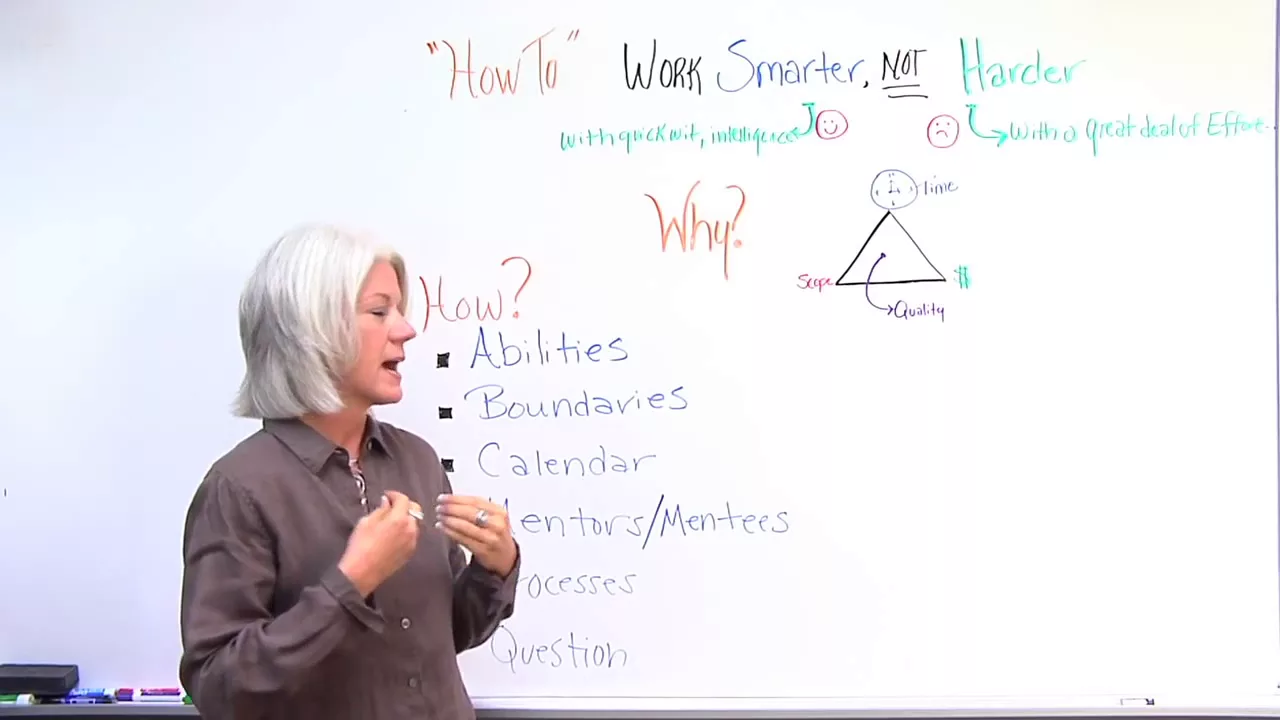 "How To" Work Smarter, NOT Harder
with quick wit, intelligence
With a Great deal of Effort..
Why?
time
Scope
$
Quality
How?
Abilities
Boundaries
Calendar
Mentors/Mentees
Processes
Question